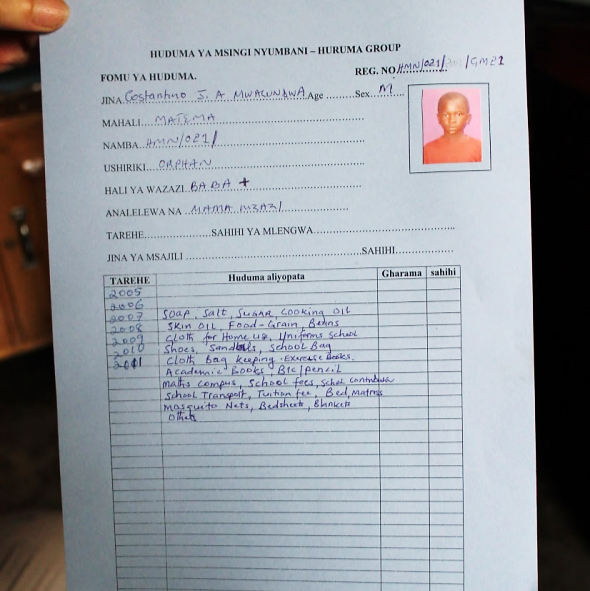 HUDUMA YA MSINGI NYUMBANI – HURUMA GROUP
FOMU YA HUDUMA. REG. NO HMN/021/ /GM21
JINA Costantino S. A MWACUNDWA Age ........Sex..M..
MAHALI .. MATEMA
NAMBA..HMN/021/
USHIRIKI.. ORPHAN
HALI YA WAZAZI BABA +
ANALELEWA NA .. MAMA MZAZI
TAREHE..................SAHIHI YA MLENGWA..........................................
JINA YA MSAJILI ..................................................SAHIHI.......................
TAREHE Huduma aliyopata Gharama sahihi
2005
2006
2007 Soap, Salt, SUGAR, Cooking OIL
2008 Skin OIL, Food-Grain, Beans
2009 Cloth for Home use, Uniforms School
2010 Shoes, Sandals, School Bag
2011 Cloth Bag keeping. Exercise Books.
Academic Books, Bic/pencil
maths compus, School fees, School
School Transport, Tuition fee, Bed, Matress
Mosquito Nets, Bedsheets, Blankets
Others